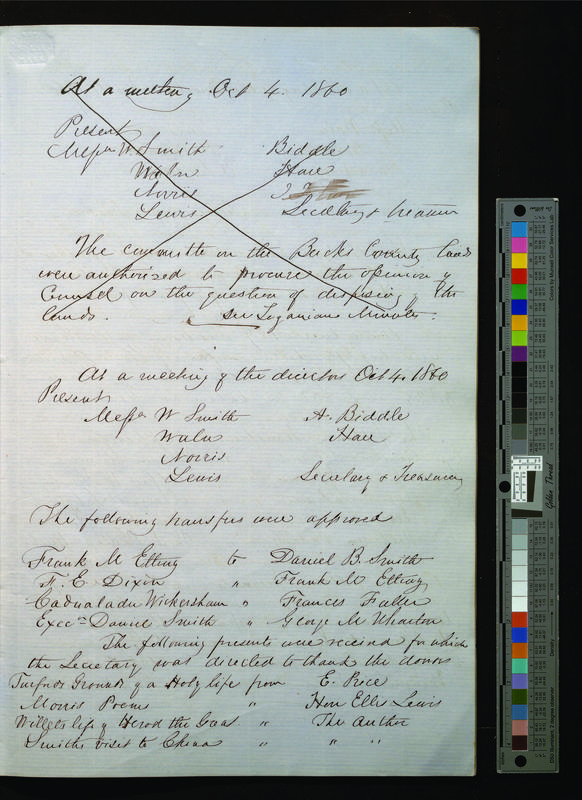 At a meeting Oct 4. 1860
Present
Messrs W Smith Biddle
Waln Hare
Norris
Lewis Secretary & Treasurer
The committee on the Bucks County lands
were authorized to procure the opinion of
Counsel on the question of disposing of the
lands. see Loganian Minutes.
At a meeting of the directors Oct 4. 1860
Present
Messrs W Smith A. Biddle
Waln Hare
Norris
Lewis Secretary & Treasurer
The following transfers were approved
Frank M Etting to Daniel B. Smith
F. E. Dixon " Frank M Etting
Cadwalader Wickersham " Frances Fuller
Excr Daniel Smith " George M Wharton
The following presents were received for which
the Secretary was directed to thank the donors
Grounds of a Holy life from E. Price
Morris Poems " Hon Ellis Lewis
Willets life of Herod the Great " The Author
Smiths visit to China " " "